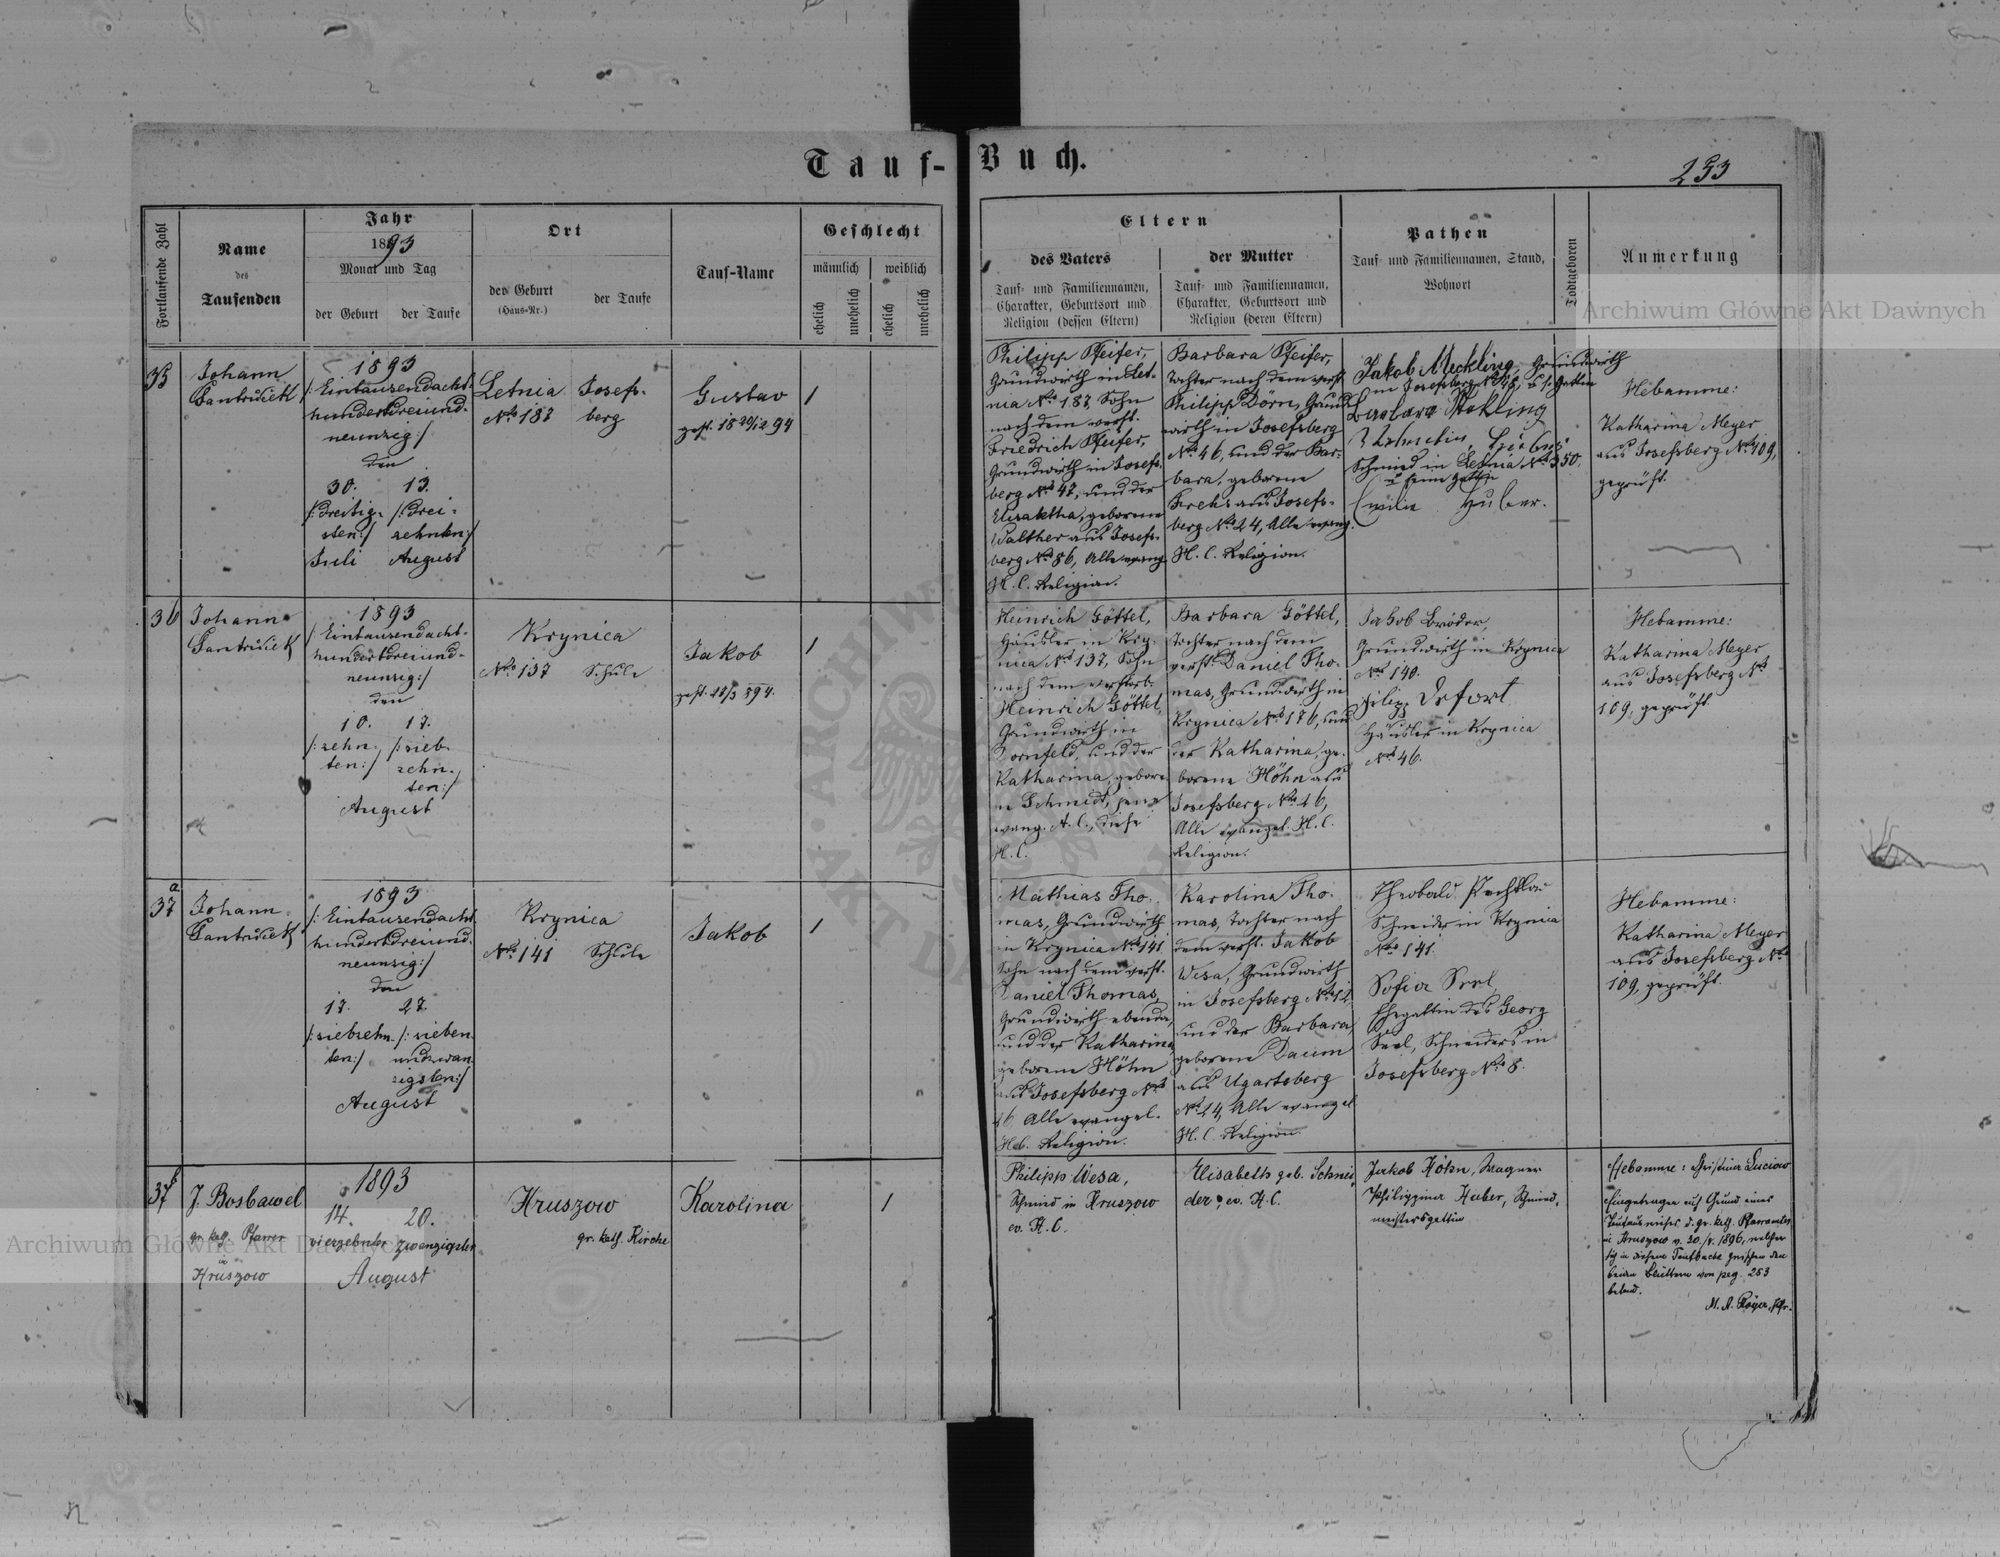 Tauf-Buch.
253
Fortlaufende Zahl
Name
des
Taufenden
Jahr
1893
Monat und Tag
der Geburt
der Taufe
Ort
der Geburt
(Haus-Nr.)
der Taufe
Tauf-Name
Geschlecht
männlich
weiblich
ehelich
unehelich
ehelich
unehelich
Eltern
des Vaters
Tauf- und Familiennamen,
Charakter, Geburtsort und
Religion (dessen Eltern)
der Mutter
Tauf- und Familiennamen,
Charakter, Geburtsort und
Religion (deren Eltern)
Pathen
Tauf- und Familiennamen, Stand,
Wohnort
Todtgeboren
Anmerkung
Archiwum Główne Akt Dawnych
35
Johann
1893
/: Eintausendacht-
hundertdreiund-
neunzig :/
den
30. 13.
/: dreißig- /: drei-
sten :/ zehnten :/
Juli August
Letnia
No 187
Josefs-
berg
Gustav
gest. 18 29/12 94
1
Philipp Pfeifer,
Grundwirth in Let-
nia No 187, Sohn
nach dem verst.
Friedrich Pfeifer,
Grundwirth in Josefs-
berg No 47, und der
Elisabetha, geborene
Walther aus Josefs-
berg No 86, Alle evang.
H. C. Religion.
Barbara Pfeifer,
Tochter nach dem verst.
Philipp Dörn, Grund-
wirth in Josefsberg
No 46, und der Bar-
bara, geborene
aus Josefs-
berg No 24, Alle evang.
H. C. Religion.
Jakob Meckling, Grundwirth
in Josefsberg No 48, u. s. Gattin
Barbara Mekling
Schmied in Letnia No 50,
u seine Gattin
Emilie Huber.
Hebamme:
Katharina Meyer
aus Josefsberg No 109,
geprüft.
36
Johann
1893
/: Eintausendacht-
hundertdreiund-
neunzig :/
den
10. 17.
/: zehn- /: sieb-
ten :/ zehn-
ten :/
August
Krynica
No 137 Schule
Jakob
gest. 18/3 894.
1
Heinrich Göttel,
Häusler in Kry-
nica No 137, Sohn
nach dem verstorb.
Heinrich Göttel,
Grundwirth in
Dornfeld, und der
Katharina, gebore-
ne Schmidt, jener
evang. A. C., diese
H. C.
Barbara Göttel,
Tochter nach dem
verst. Daniel Tho-
mas, Grundwirth in
Krynica No 176, und
der Katharina, ge-
borene Höhn aus
Josefsberg No 16,
Alle evangel. H. C.
Religion.
Jakob Bröder,
Grundwirth in Krynica
No 140.
Filipp Defort
Häusler in Krynica
No 46.
Hebamme:
Katharina Meyer
aus Josefsberg No
109, geprüft.
37 a
Johann
1893
/: Eintausendacht-
hundertdreiund-
neunzig :/
den
17. 27.
/: siebzehn- /: sieben-
ten :/ undzwan-
zigsten :/
August
Krynica
No 141 Schule
Jakob
1
Mathias Tho-
mas, Grundwirth
in Krynica No 141
Sohn nach dem verst.
Daniel Thomas,
Grundwirth ebenda,
und der Katharina,
geborene Höhn
aus Josefsberg No
16 Alle evangel.
Helv. Religion.
Karolina Tho-
mas, Tochter nach
dem verst. Jakob
Wesa, Grundwirth
in Josefsberg No 12,
und der Barbara,
geborene Daum
aus Ugartsberg
No 24, Alle evangel
H. C. Religion.
Theobald
Schneider in Krynica
No 141.
Sofia Seel,
Ehegattin des Georg
Seel, Schneiders in
Josefsberg No 8.
Hebamme:
Katharina Meyer
aus Josefsberg No
109, geprüft.
37 b
J. Bosbawel
gr. kath. Pfarrer
in
Hruszow
1893
14. 20.
vierzehnter zwanzigster
August
Hruszow
gr. kath. Kirche
Karolina
1
Philipp Wesa,
Schmied in Hruszow
ev. H. C.
Elisabeth geb. Schnei-
der, ev. H. C.
Jakob Höhn, Wagner
Philippina Huber, Schmied-
meistersgattin
Hebamme: Christina
Eingetragen auf Grund eines
d. gr. kath. Pfarramtes
in Hruszow v. 30./ 1896, welcher
sich in diesem Taufbuche zwischen den
beiden Blättern von pag. 253
befind.
M. A. Royer, Pfr.
Archiwum Główne Akt Dawnych